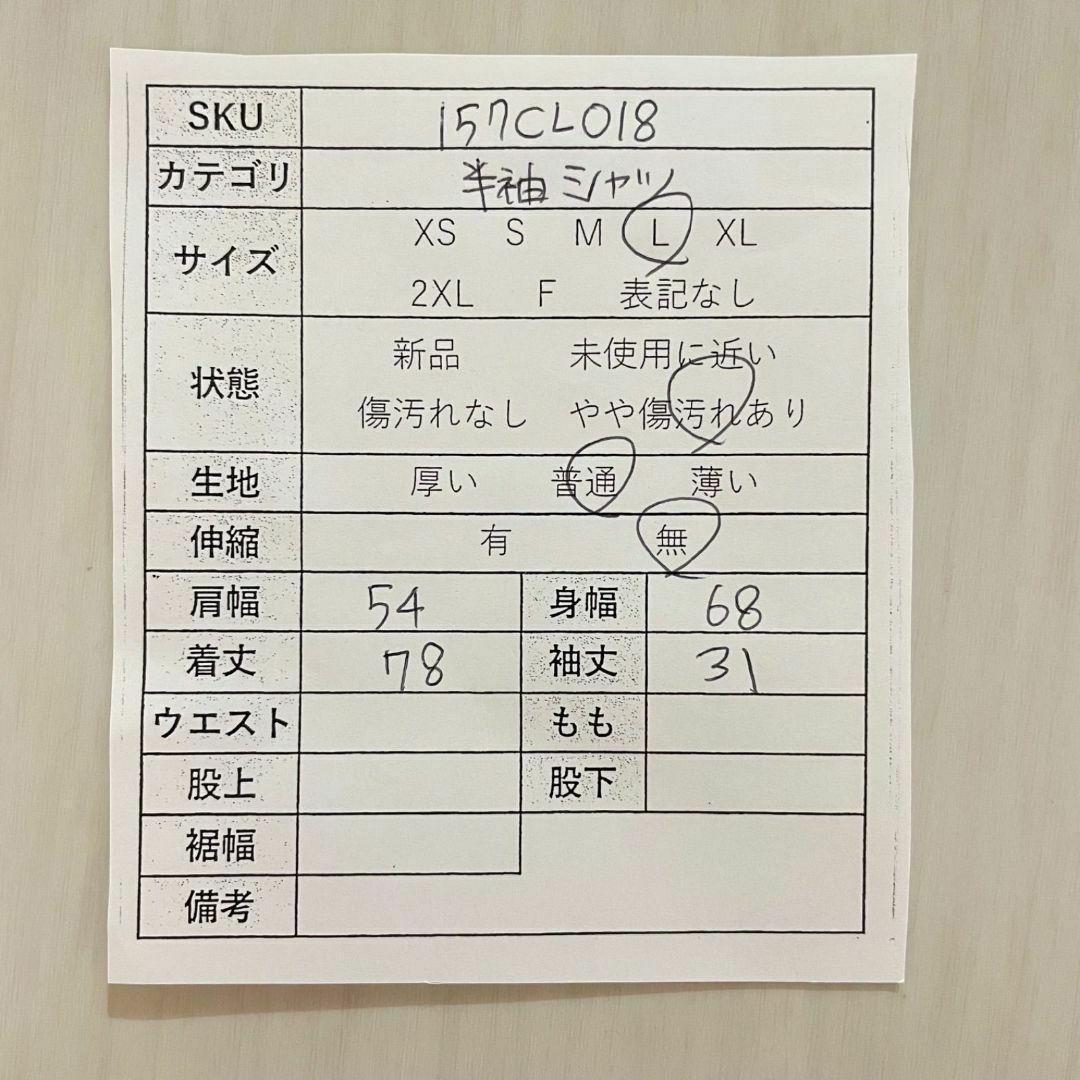 SKU 157CL018
カテゴリ 半袖シャツ
サイズ XS S M L XL
2XL F 表記なし
状態 新品 未使用に近い
傷汚れなし やや傷汚れあり
生地 厚い 普通 薄い
伸縮 有 無
肩幅 54 身幅 68
着丈 78 袖丈 31
ウエスト もも
股上 股下
裾幅
備考